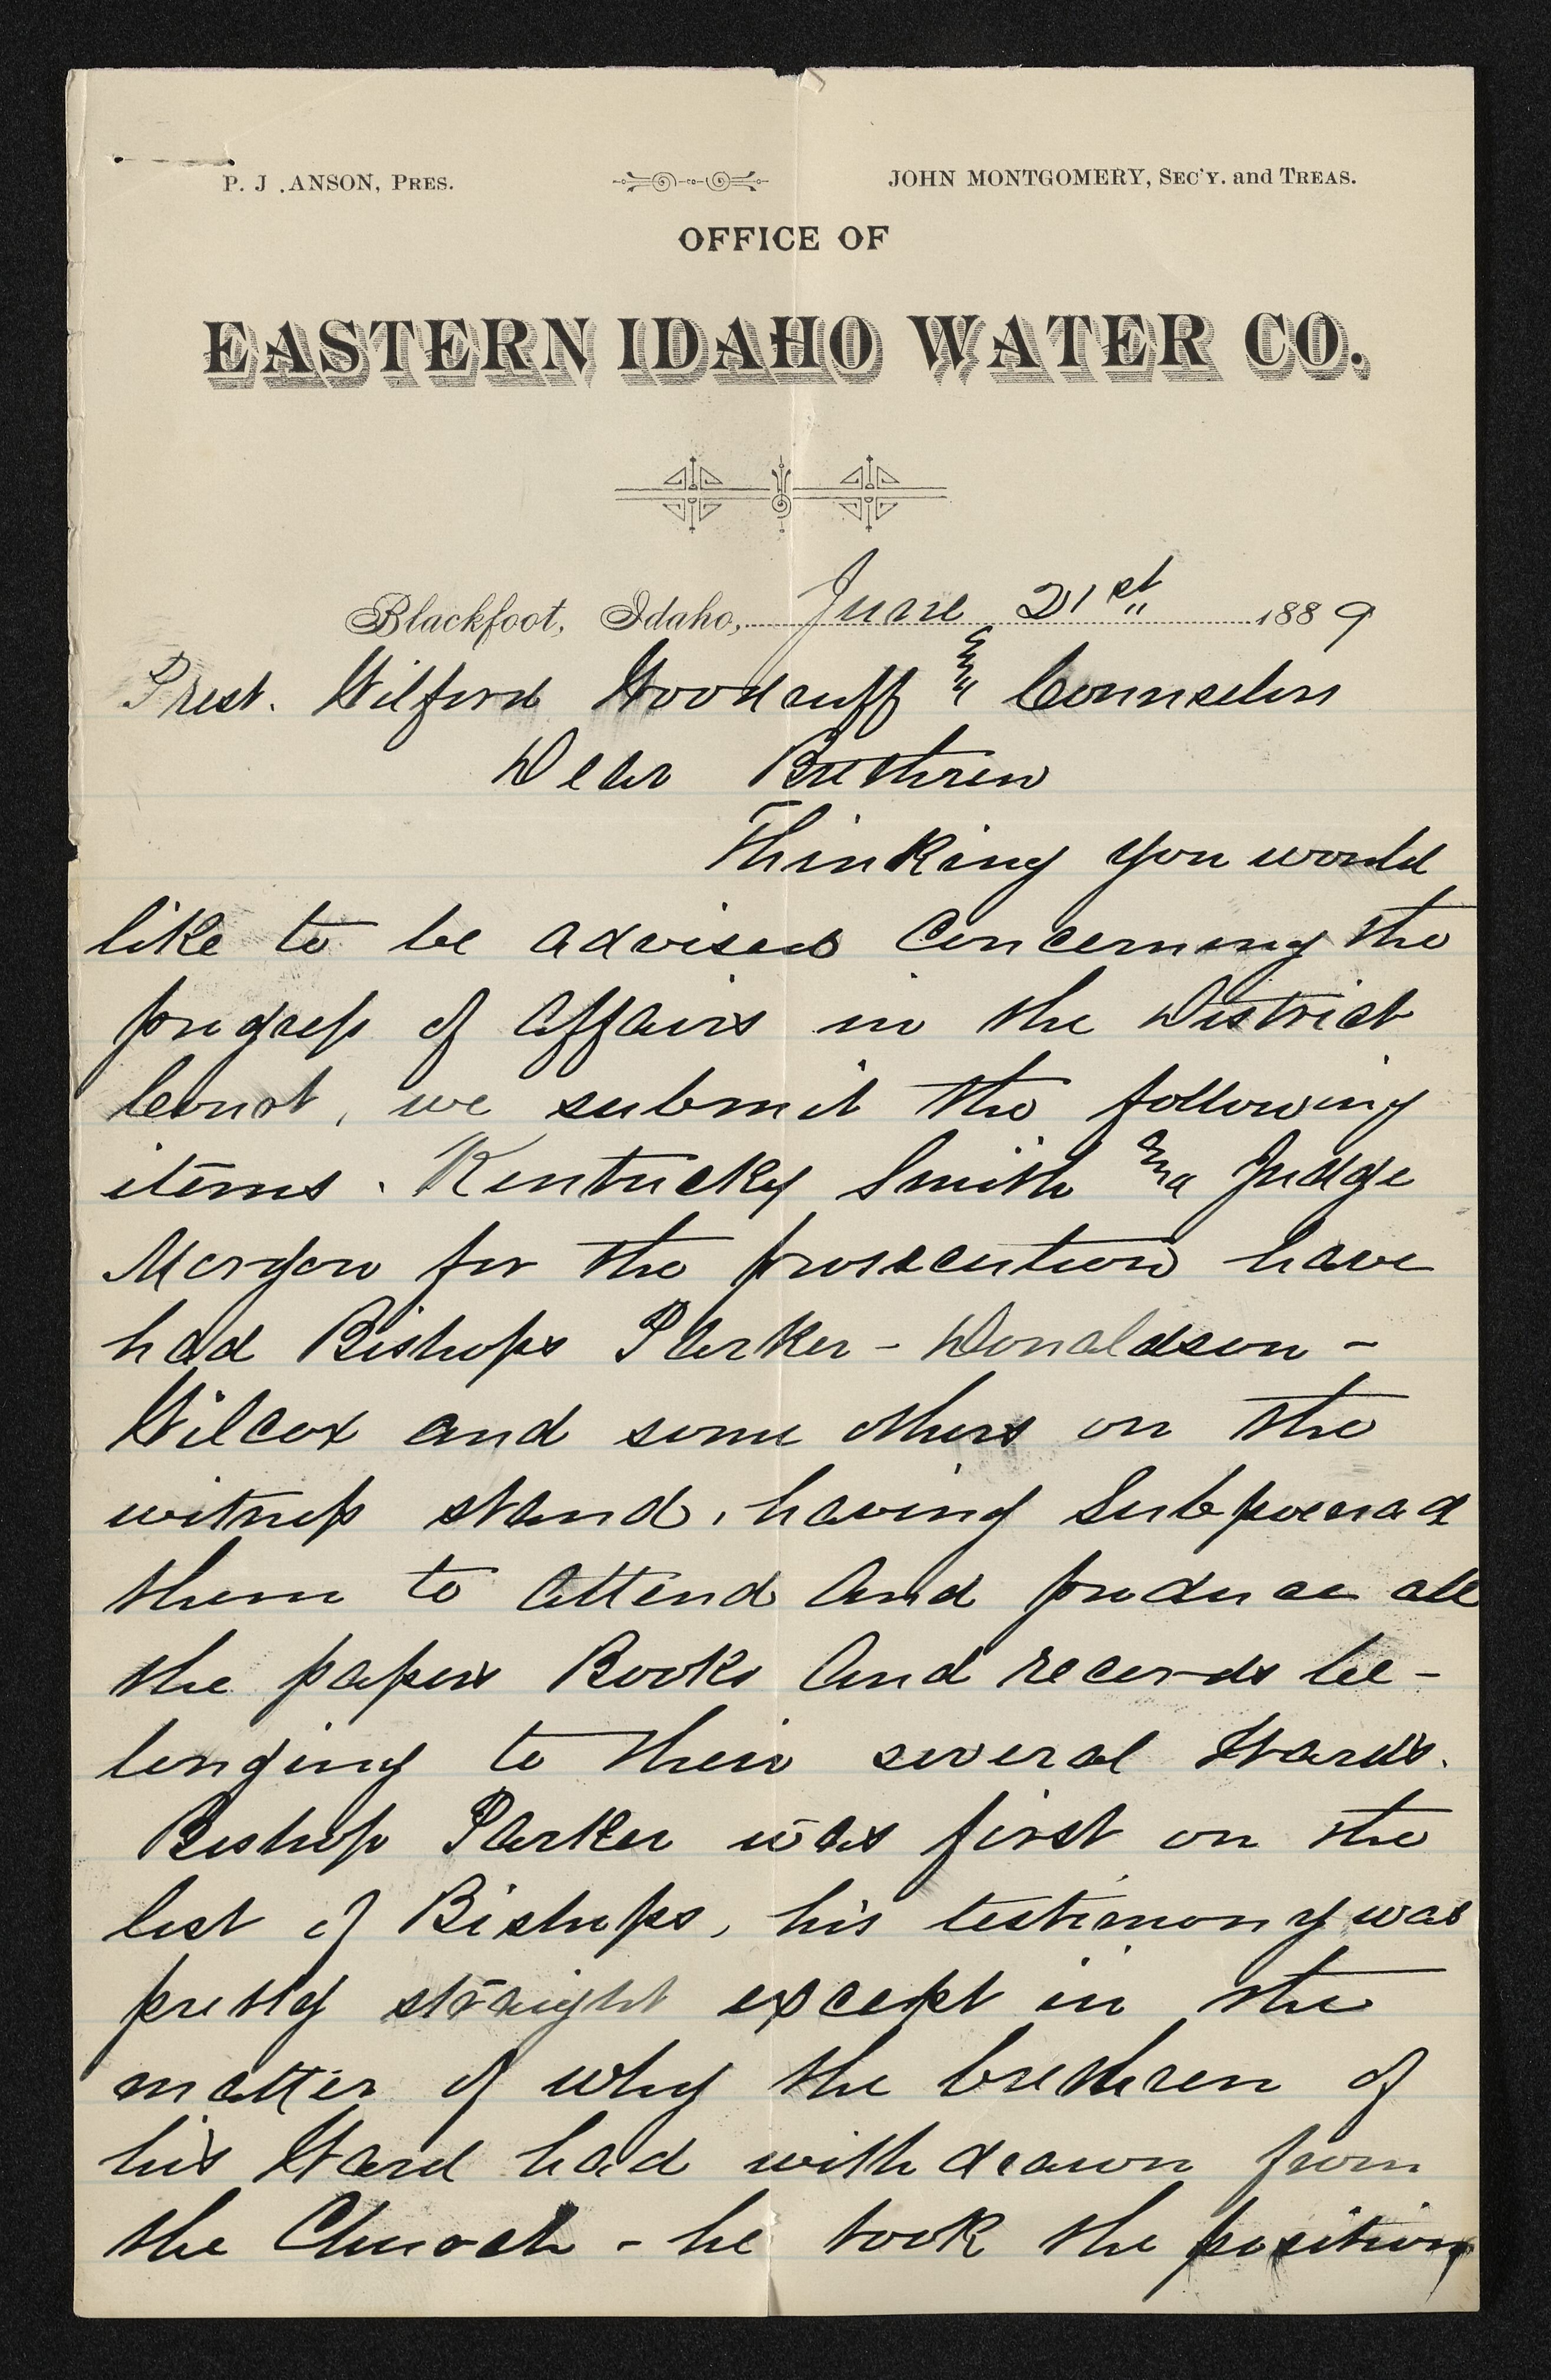 P. J. ANSON, PRES.
JOHN MONTGOMERY, SEC'Y. and TREAS.
OFFICE OF
EASTERN IDAHO WATER CO.
Blackfoot, Idaho, June 21st 1889
Prest. Wilford Woodruff & Counselors
Dear Brethren
Thinking you would
like to be advised Concerning the
progress of affairs in the District
Court, we submit the following
items. Kentucky Smith & Judge
Morgan for the prosecution have
had Bishops Parker - Donaldson -
Wilcox and some others on the
witness stand, having Subpoenad
them to attend And produce all
the papers Books And records be-
longing to their several Wards.
Bishop Parker was first on the
list of Bishops, his testimony was
pretty straight except in the
matter of why the brethren of
his Ward had withdrawn from
the Church - he took the position